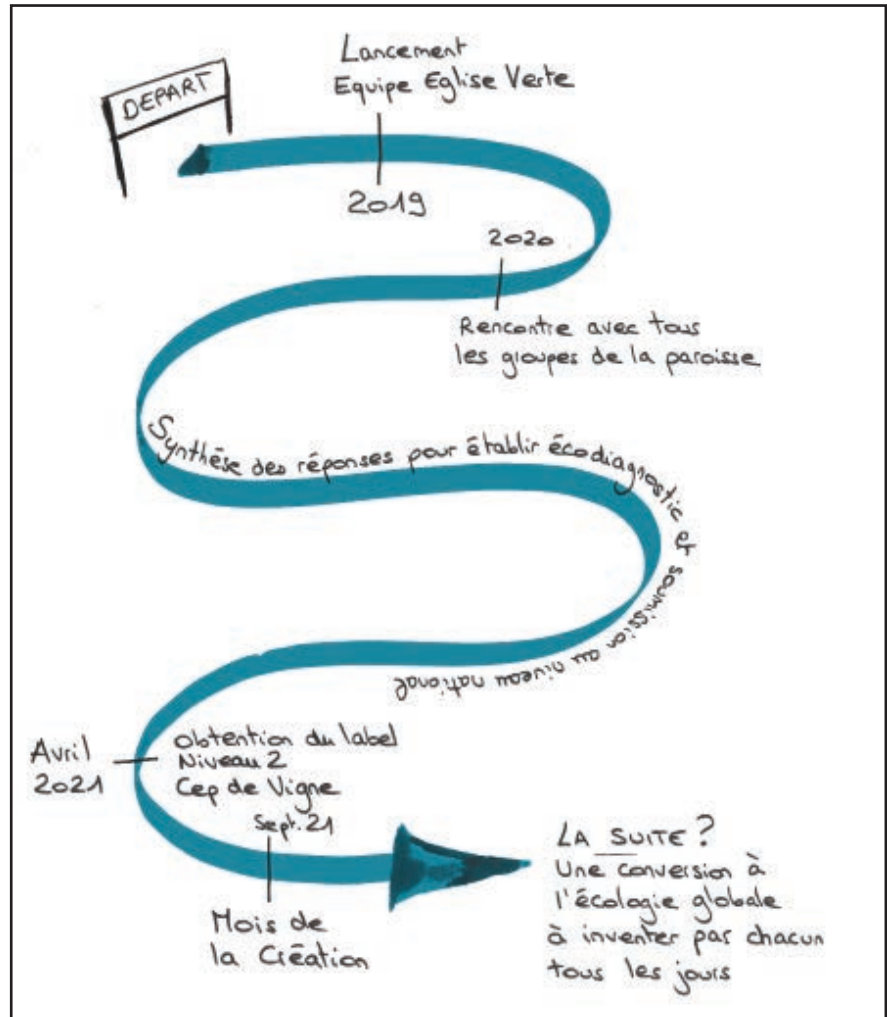 DEPART
Lancement
Equipe Eglise Verte
2019
2020
Rencontre avec tous
les groupes de la paroisse
Synthèse des réponses pour établir écodiagnostic et soumission au niveau national
Avril
2021
Obtention du label
Niveau 2
Cep de Vigne
Sept. 21
Mois de
la Création
LA SUITE ?
Une conversion à
l'écologie globale
à inventer par chacun
tous les jours